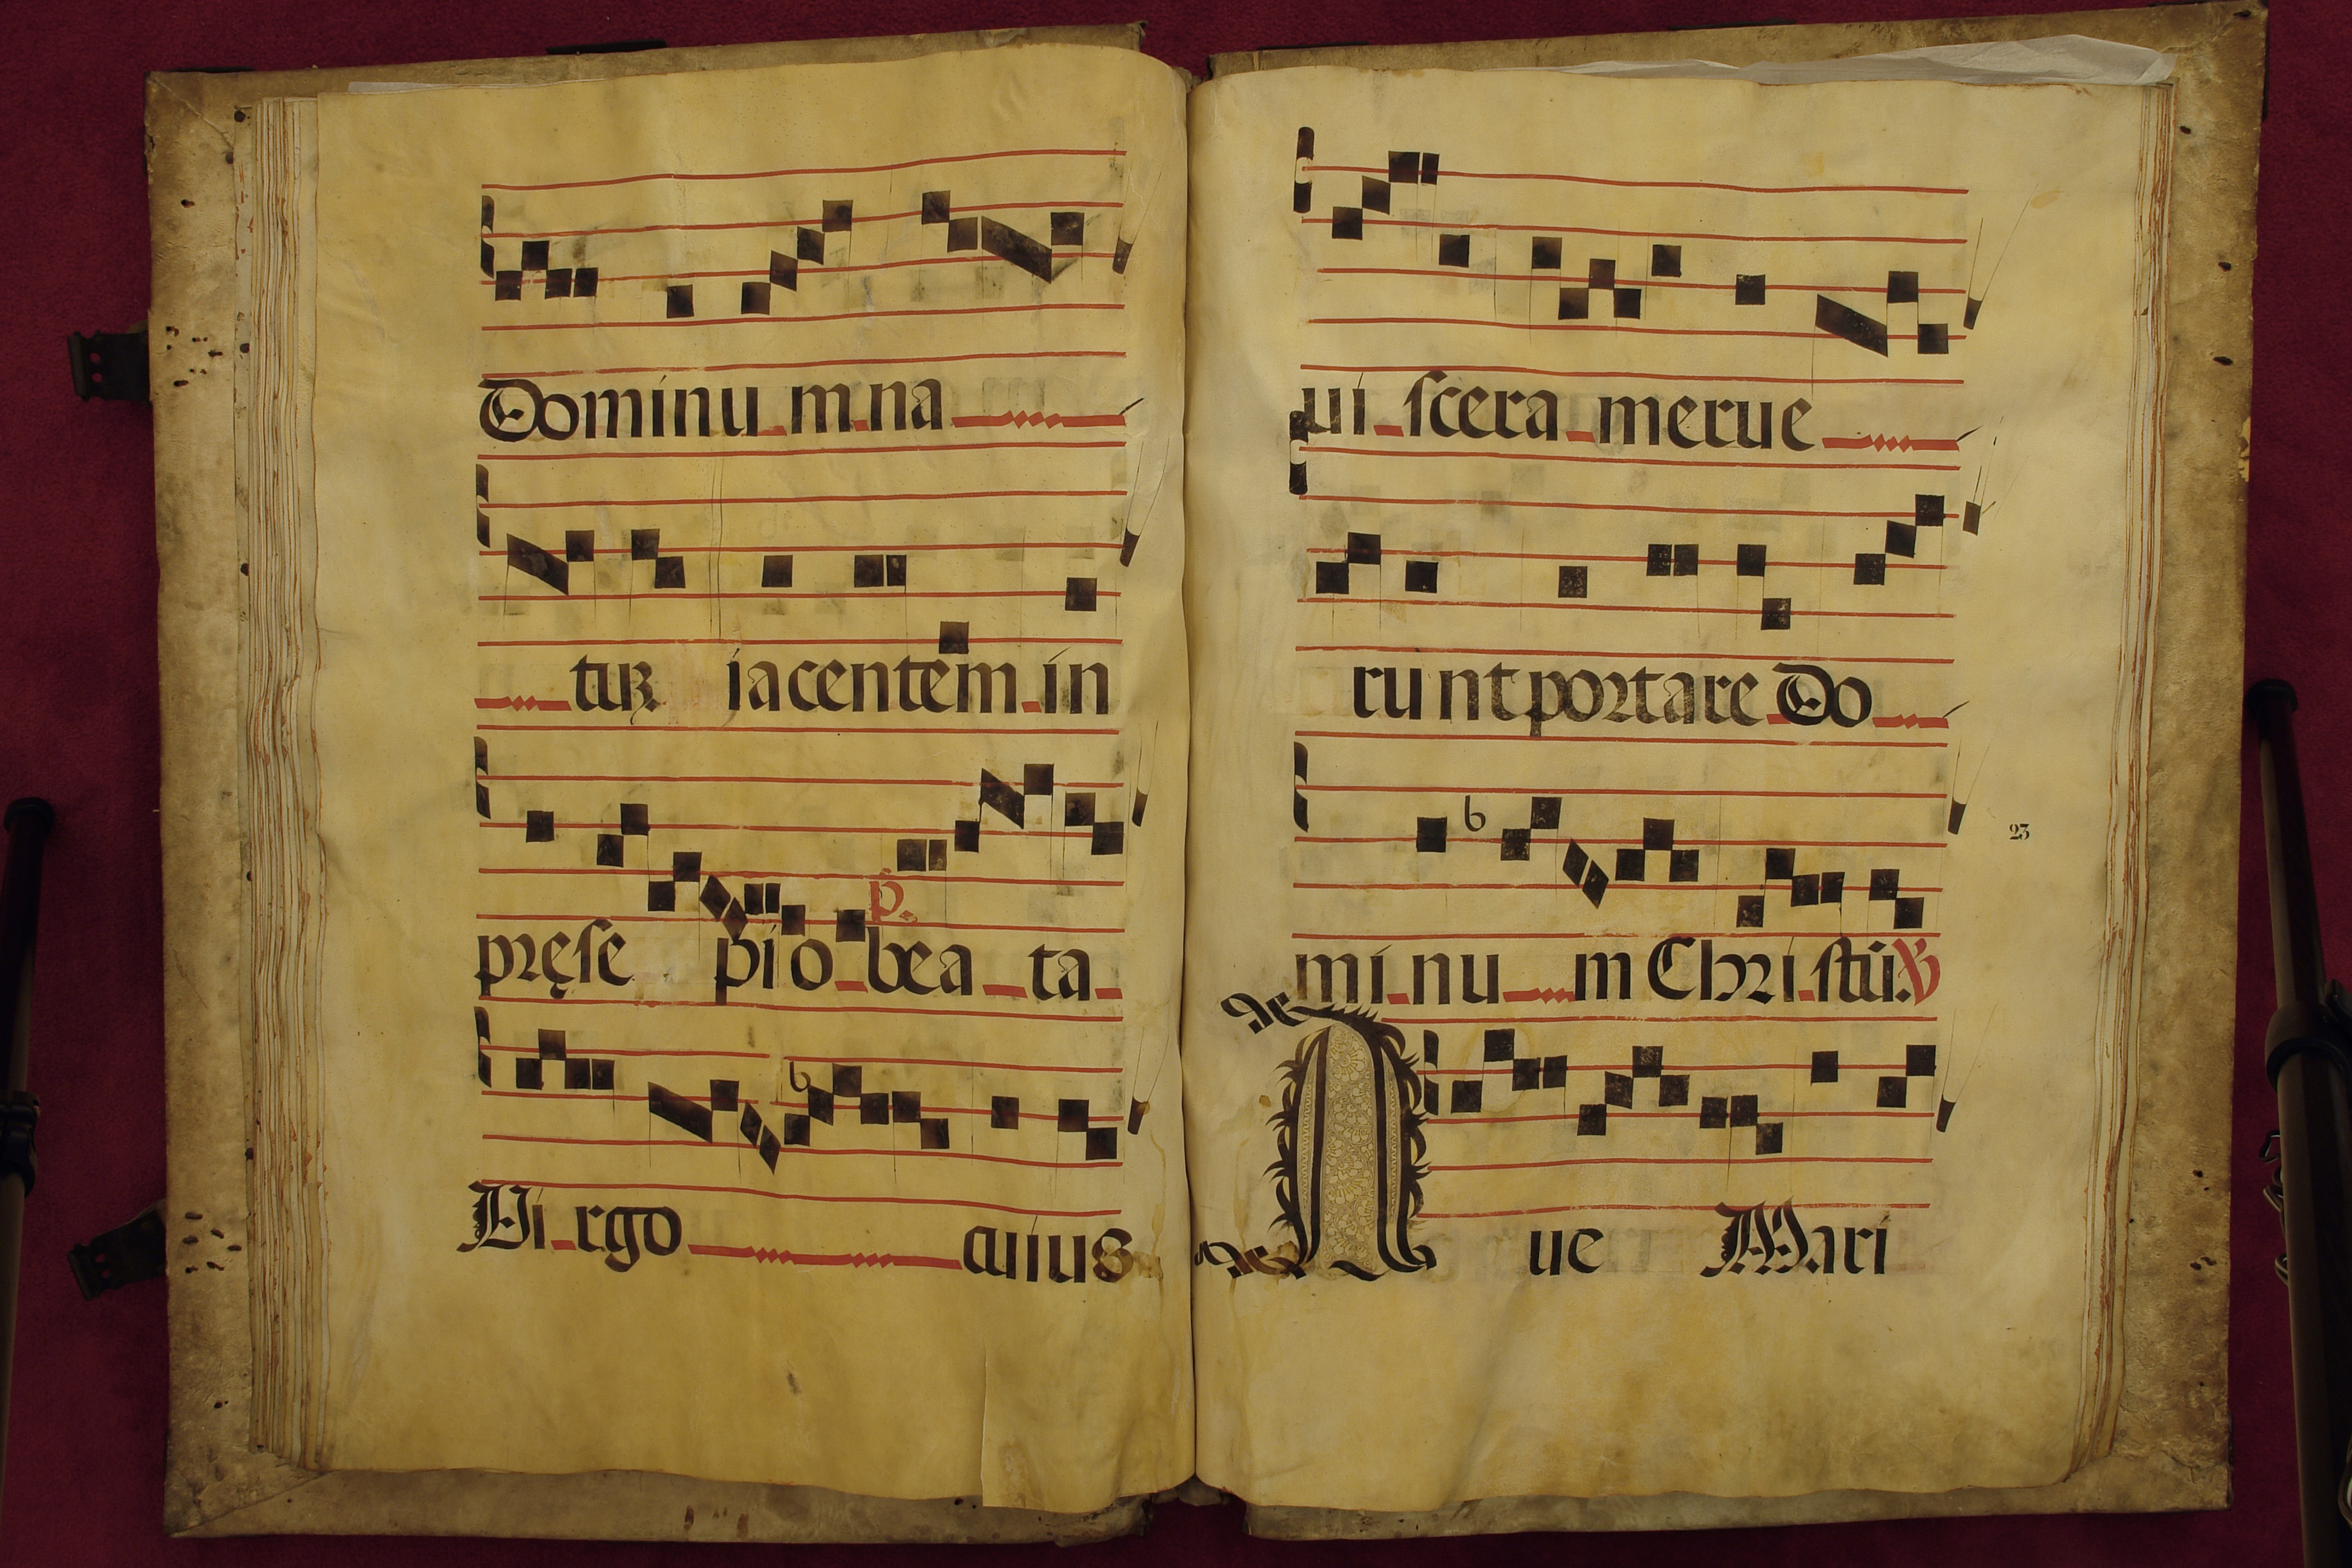 Dominu m na
tuꝝ iacentem in
p.
pręse pio bea ta
Vi rgo cuius
ui scera merue
runt portare Do
23
mi nu m Chri stū: ℣
A ue Mari